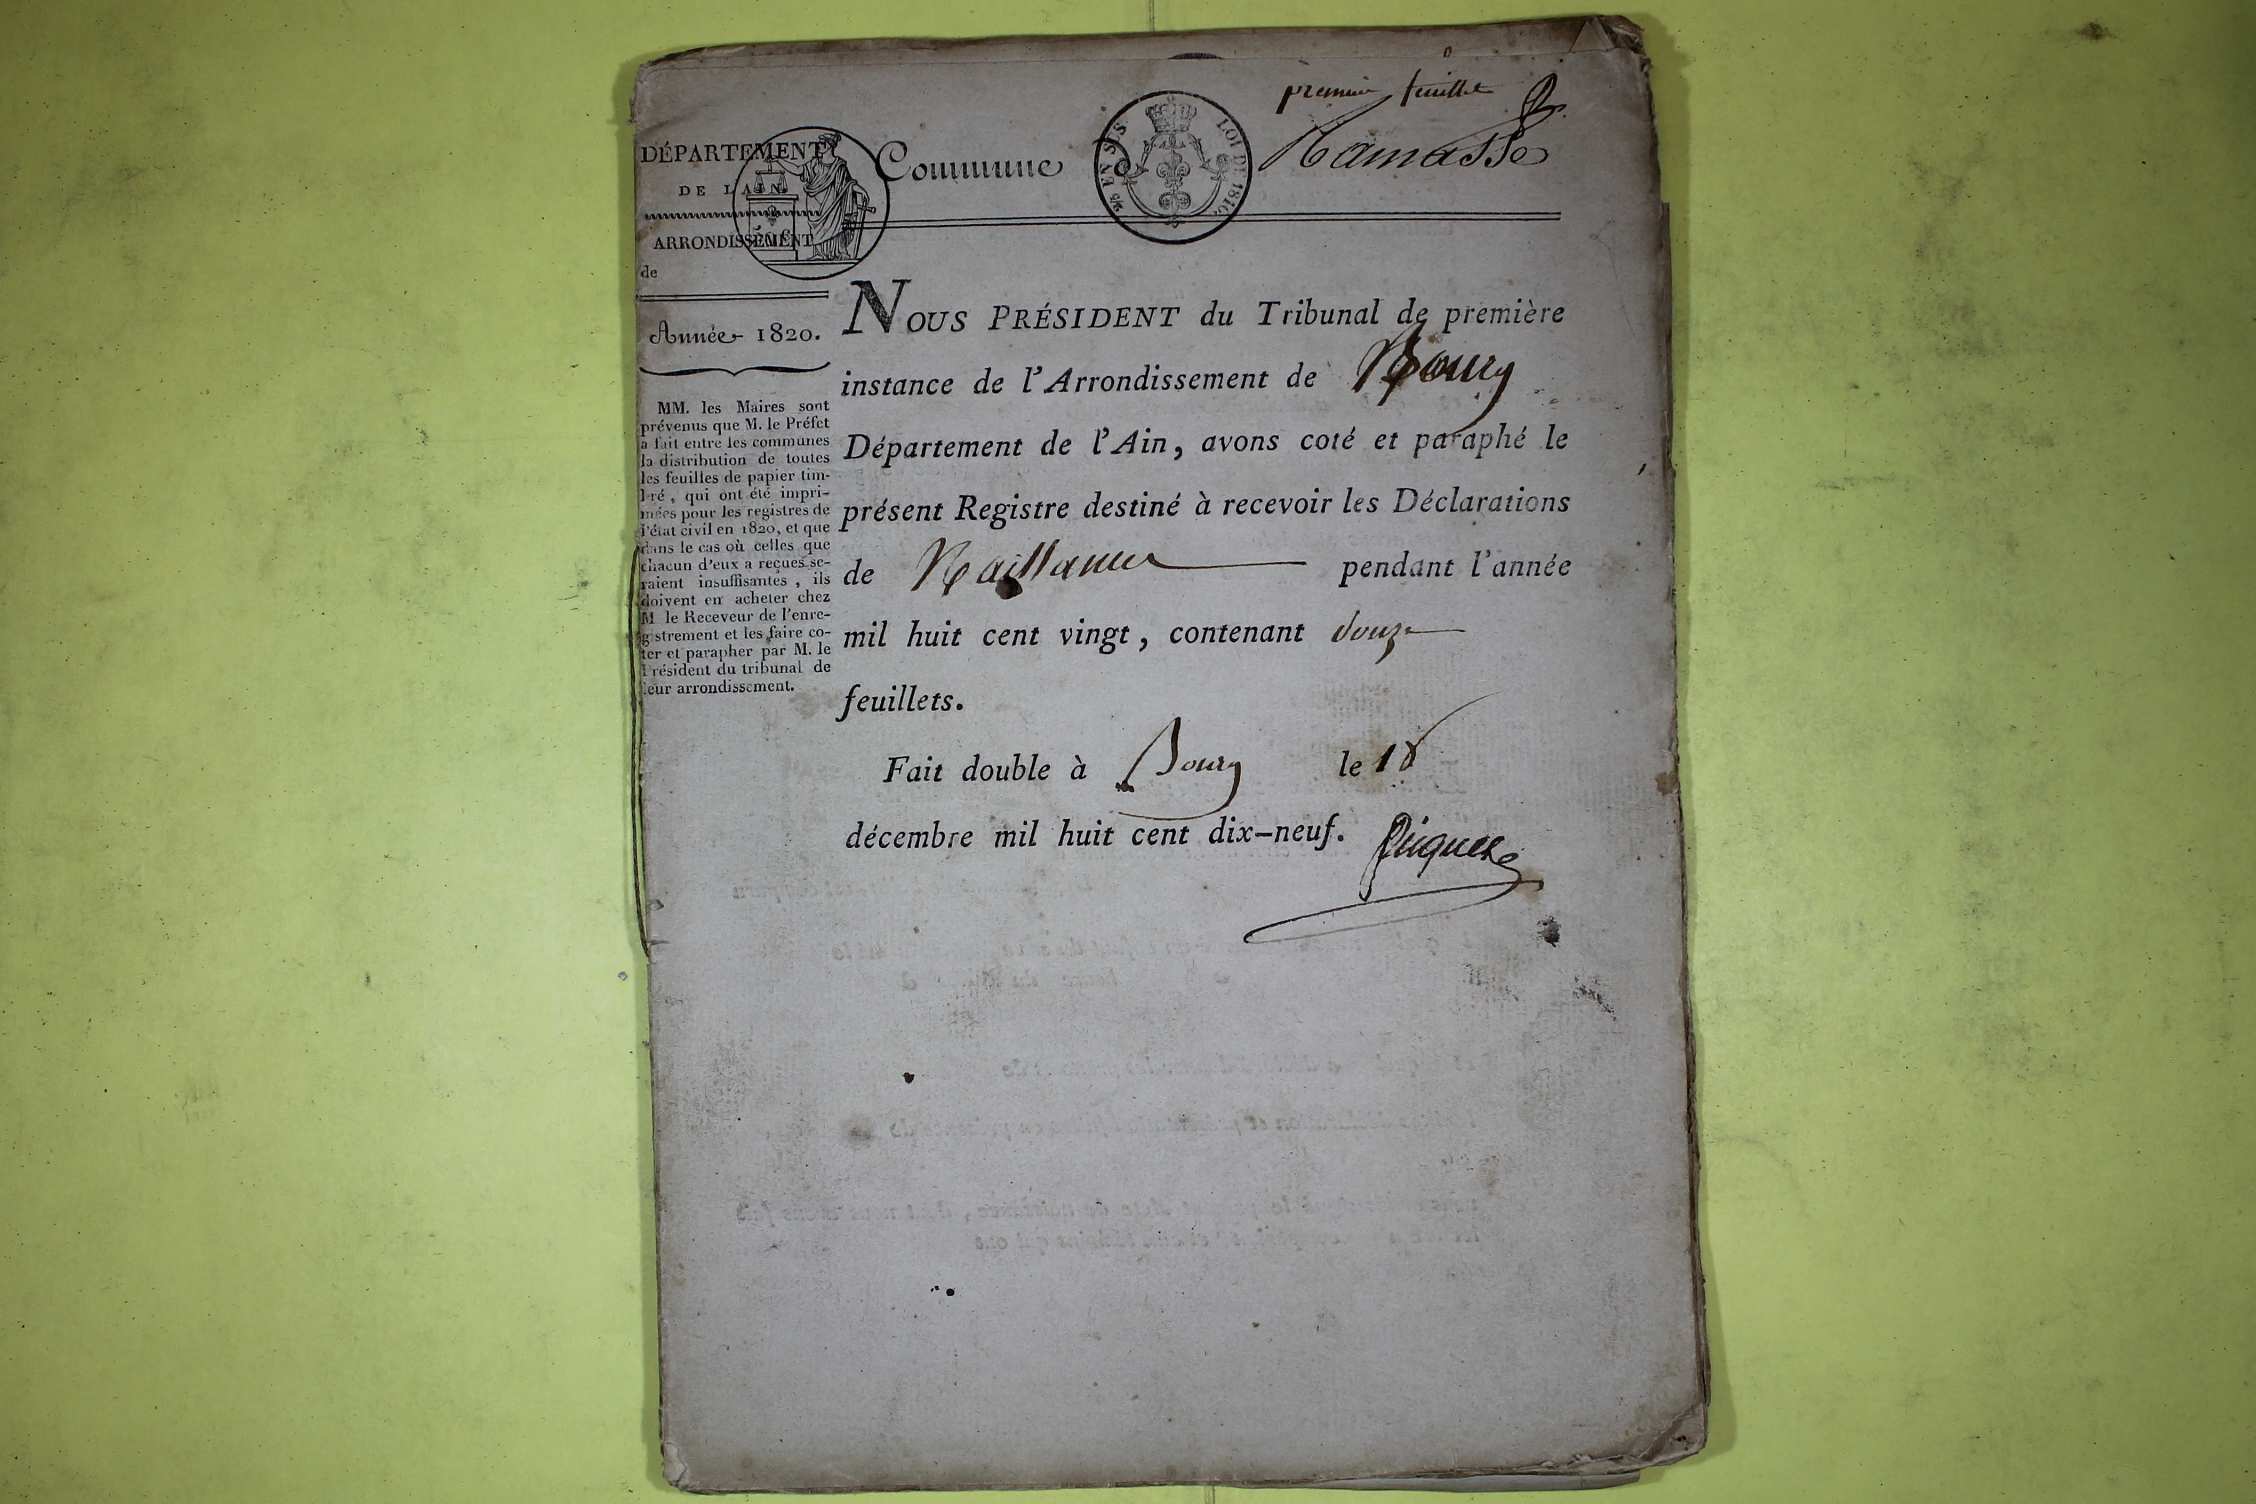 premier feuillet
DÉPARTEMENT
DE L'AIN
Commune de Ramasse
25 EN SUS
LOI DE 1816.
50 C
ARRONDISSEMENT
de
Année 1820.
MM. les Maires sont
prévenus que M. le Préfet
a fait entre les communes
la distribution de toutes
les feuilles de papier tim-
bré, qui ont été impri-
mées pour les registres de
l'état civil en 1820, et que
dans le cas où celles que
chacun d'eux a reçues se-
raient insuffisantes, ils
doivent en acheter chez
M le Receveur de l'enre-
gistrement et les faire co-
ter et parapher par M. le
Président du tribunal de
leur arrondissement.
NOUS PRÉSIDENT du Tribunal de première
instance de l'Arrondissement de Bourg
Département de l'Ain, avons coté et paraphé le
présent Registre destiné à recevoir les Déclarations
de Naissance pendant l'année
mil huit cent vingt, contenant douze
feuillets.
Fait double à Bourg le 18
décembre mil huit cent dix-neuf.